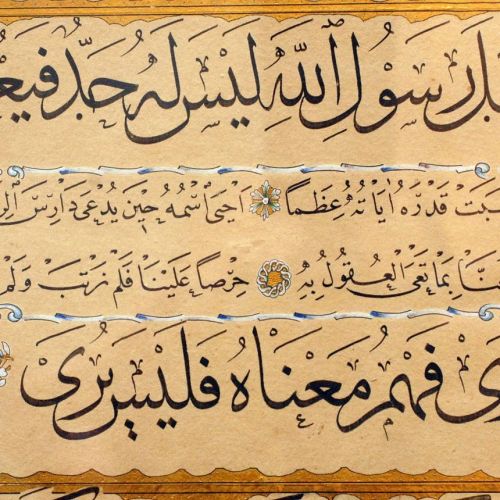 رَسُولَ اللّٰهِ لَيْسَ لَهُ حَدٌّ فَيُعْ
سَبَتْ قَدْرَهُ اٰيَاتُهُ عِظَمًا اَحْيَى اسْمُهُ حِينَ يُدْعٰى دَارِسَ ال
نَّا بِمَا تَعْيَ الْعُقُولُ بِهِ حِرْصًا عَلَيْنَا فَلَمْ نَرْتَبْ وَلَمْ
ى فَهْمُ مَعْنَاهُ فَلَيْسَ يُرٰى